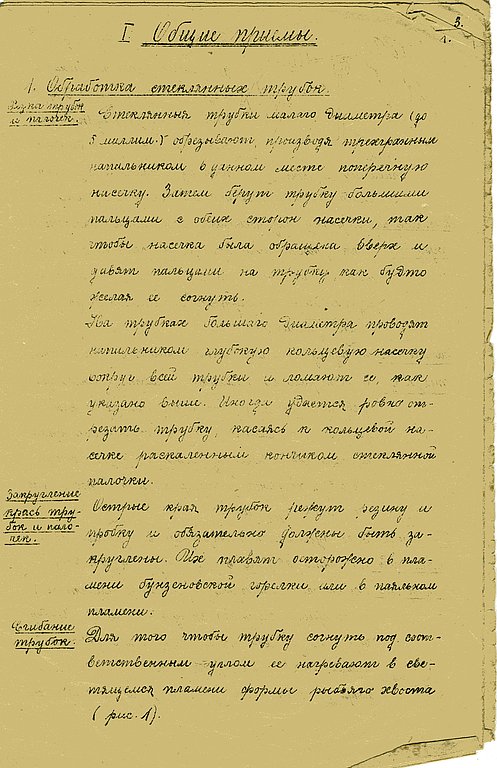 3.
I Общие приемы.
1. Обработка стеклянных трубок.
Резка трубок
и палочек.
Стеклянныя трубки малаго диаметра (до
5 миллим.) обрезывают, производя трехгранным
напильником в данном месте поперечную
насечку. Затем берут трубку большими
пальцами с обеих сторон насечки, так
чтобы насечка была обращена вверх и
давят пальцами на трубку как будто
желая ее согнуть.
На трубках большаго диаметра проводят
напильником глубокую кольцевую насечку
вокруг всей трубки и ломают ее, как
указано выше. Иногда удается ровно от-
резать трубку, касаясь к кольцевой на-
сечке раскаленным кончиком стеклянной
палочки.
Закругление
краев тру-
бок и пало-
чек.
Острые края трубок режут резину и
пробку и обязательно должны быть за-
круглены. Их правят осторожно в пла-
мени бунзеновской горелки или в паяльном
пламени.
Сгибание
трубок.
Для того чтобы трубку согнуть под соот-
ветственным углом ее нагревают в све-
тящемся пламени формы рыбьяго хвоста
(рис. 1).